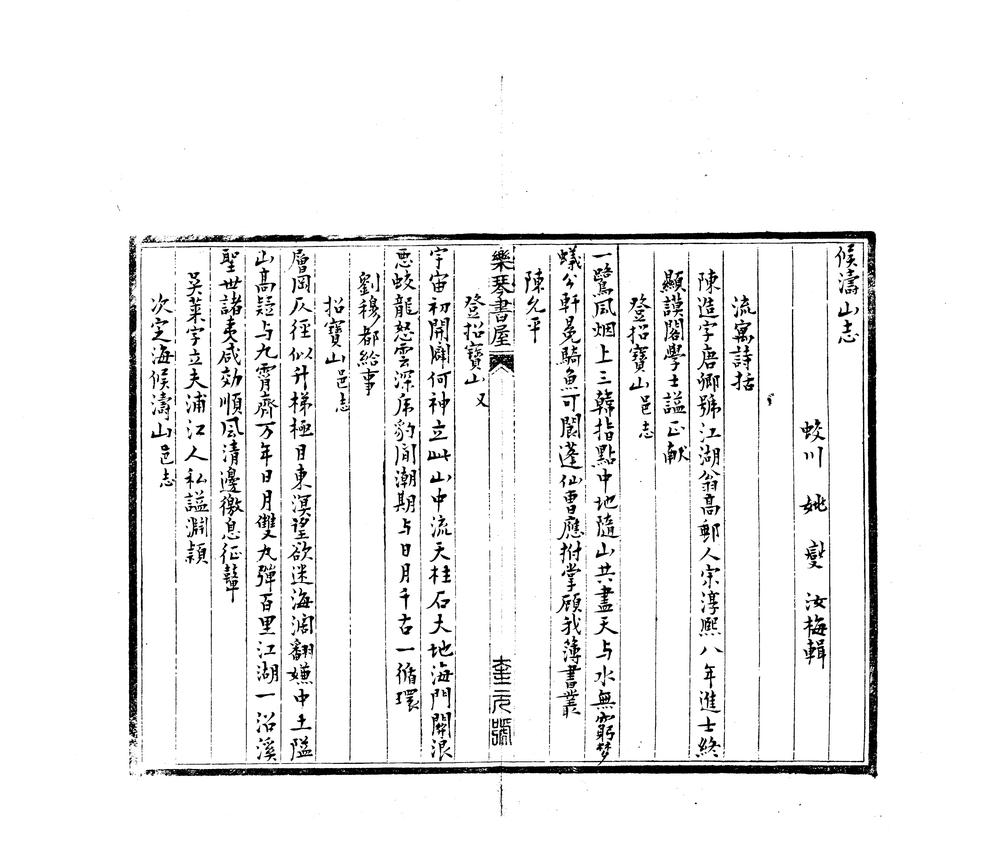 候濤山志
蛟川 姚 燮 汝梅輯
流寓詩括
陳造字唐卿號江湖翁高郵人宋淳熙八年進士終
顯謨閣學士謚正獻
登招寶山邑志
一鷺風烟上三韓指點中地隨山共盡天与水無窮梦
蟻公軒冕騎魚可閬蓬仙曹應拊掌顧我簿書叢
陳允平
登招寶山又
樂琴書屋
宇宙初開闢何神立此山中流天柱石大地海門關浪
惡蛟龍怒雲深虎豹閒潮期与日月千古一循環
劉穆都給事
招寶山邑志
層岡仄徑似升梯極目東溟望欲迷海濶翻嫌中土隘
山高疑与九霄齊万年日月雙丸彈百里江湖一沼溪
聖世諸夷咸効順風清邊徼息征鼙
吴萊字立夫浦江人私謚淵穎
次定海候濤山邑志